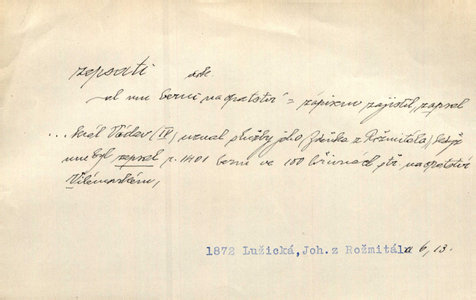 zepsati dok.
-al mu berni na opatství = zápisem zajistil, zapsal
... král Václav (IV) uznal služby jeho (Zdeňka z Rožmitála), když
mu byl zepsal r. 1401 berni ve 100 hřivnách stř. na opatství
Vilémovském,
1872 Lužická, Joh. z Rožmitála 6, 13.